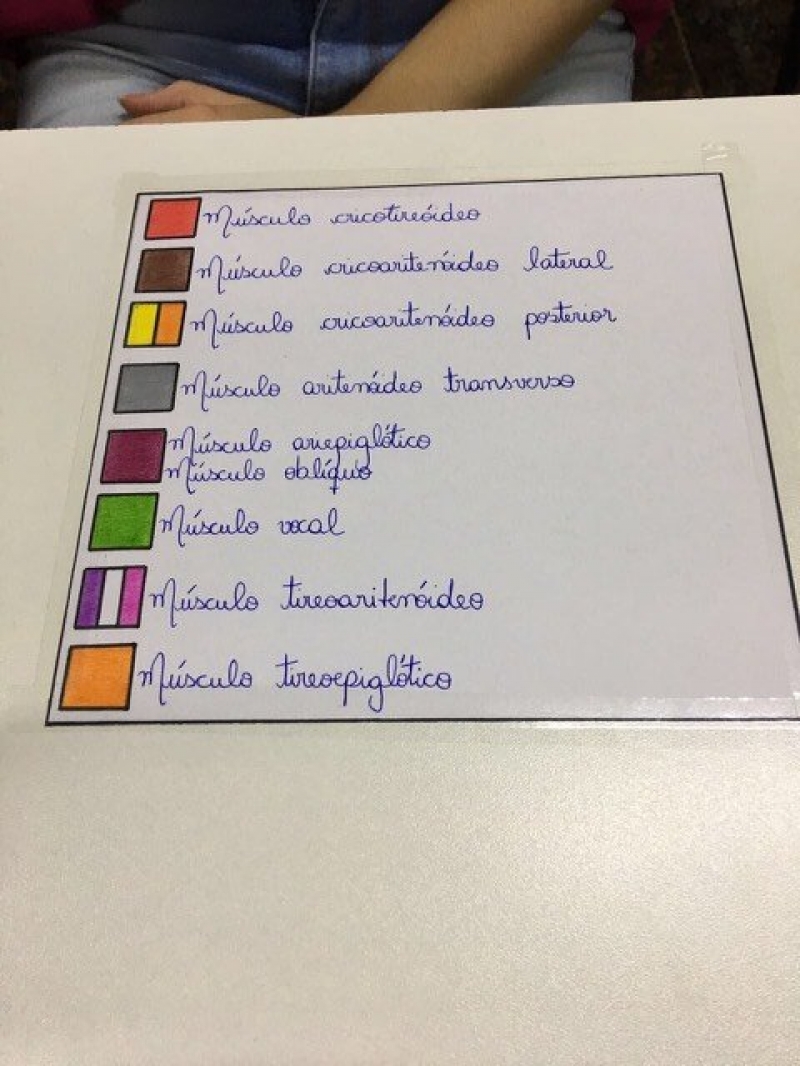 Músculo cricotireóideo
Músculo cricoaritenóideo lateral
Músculo cricoaritenóideo posterior
Músculo aritenóideo transverso
Músculo ariepiglótico
Músculo oblíquo
Músculo vocal
Músculo tireoaritenóideo
Músculo tireoepiglótico